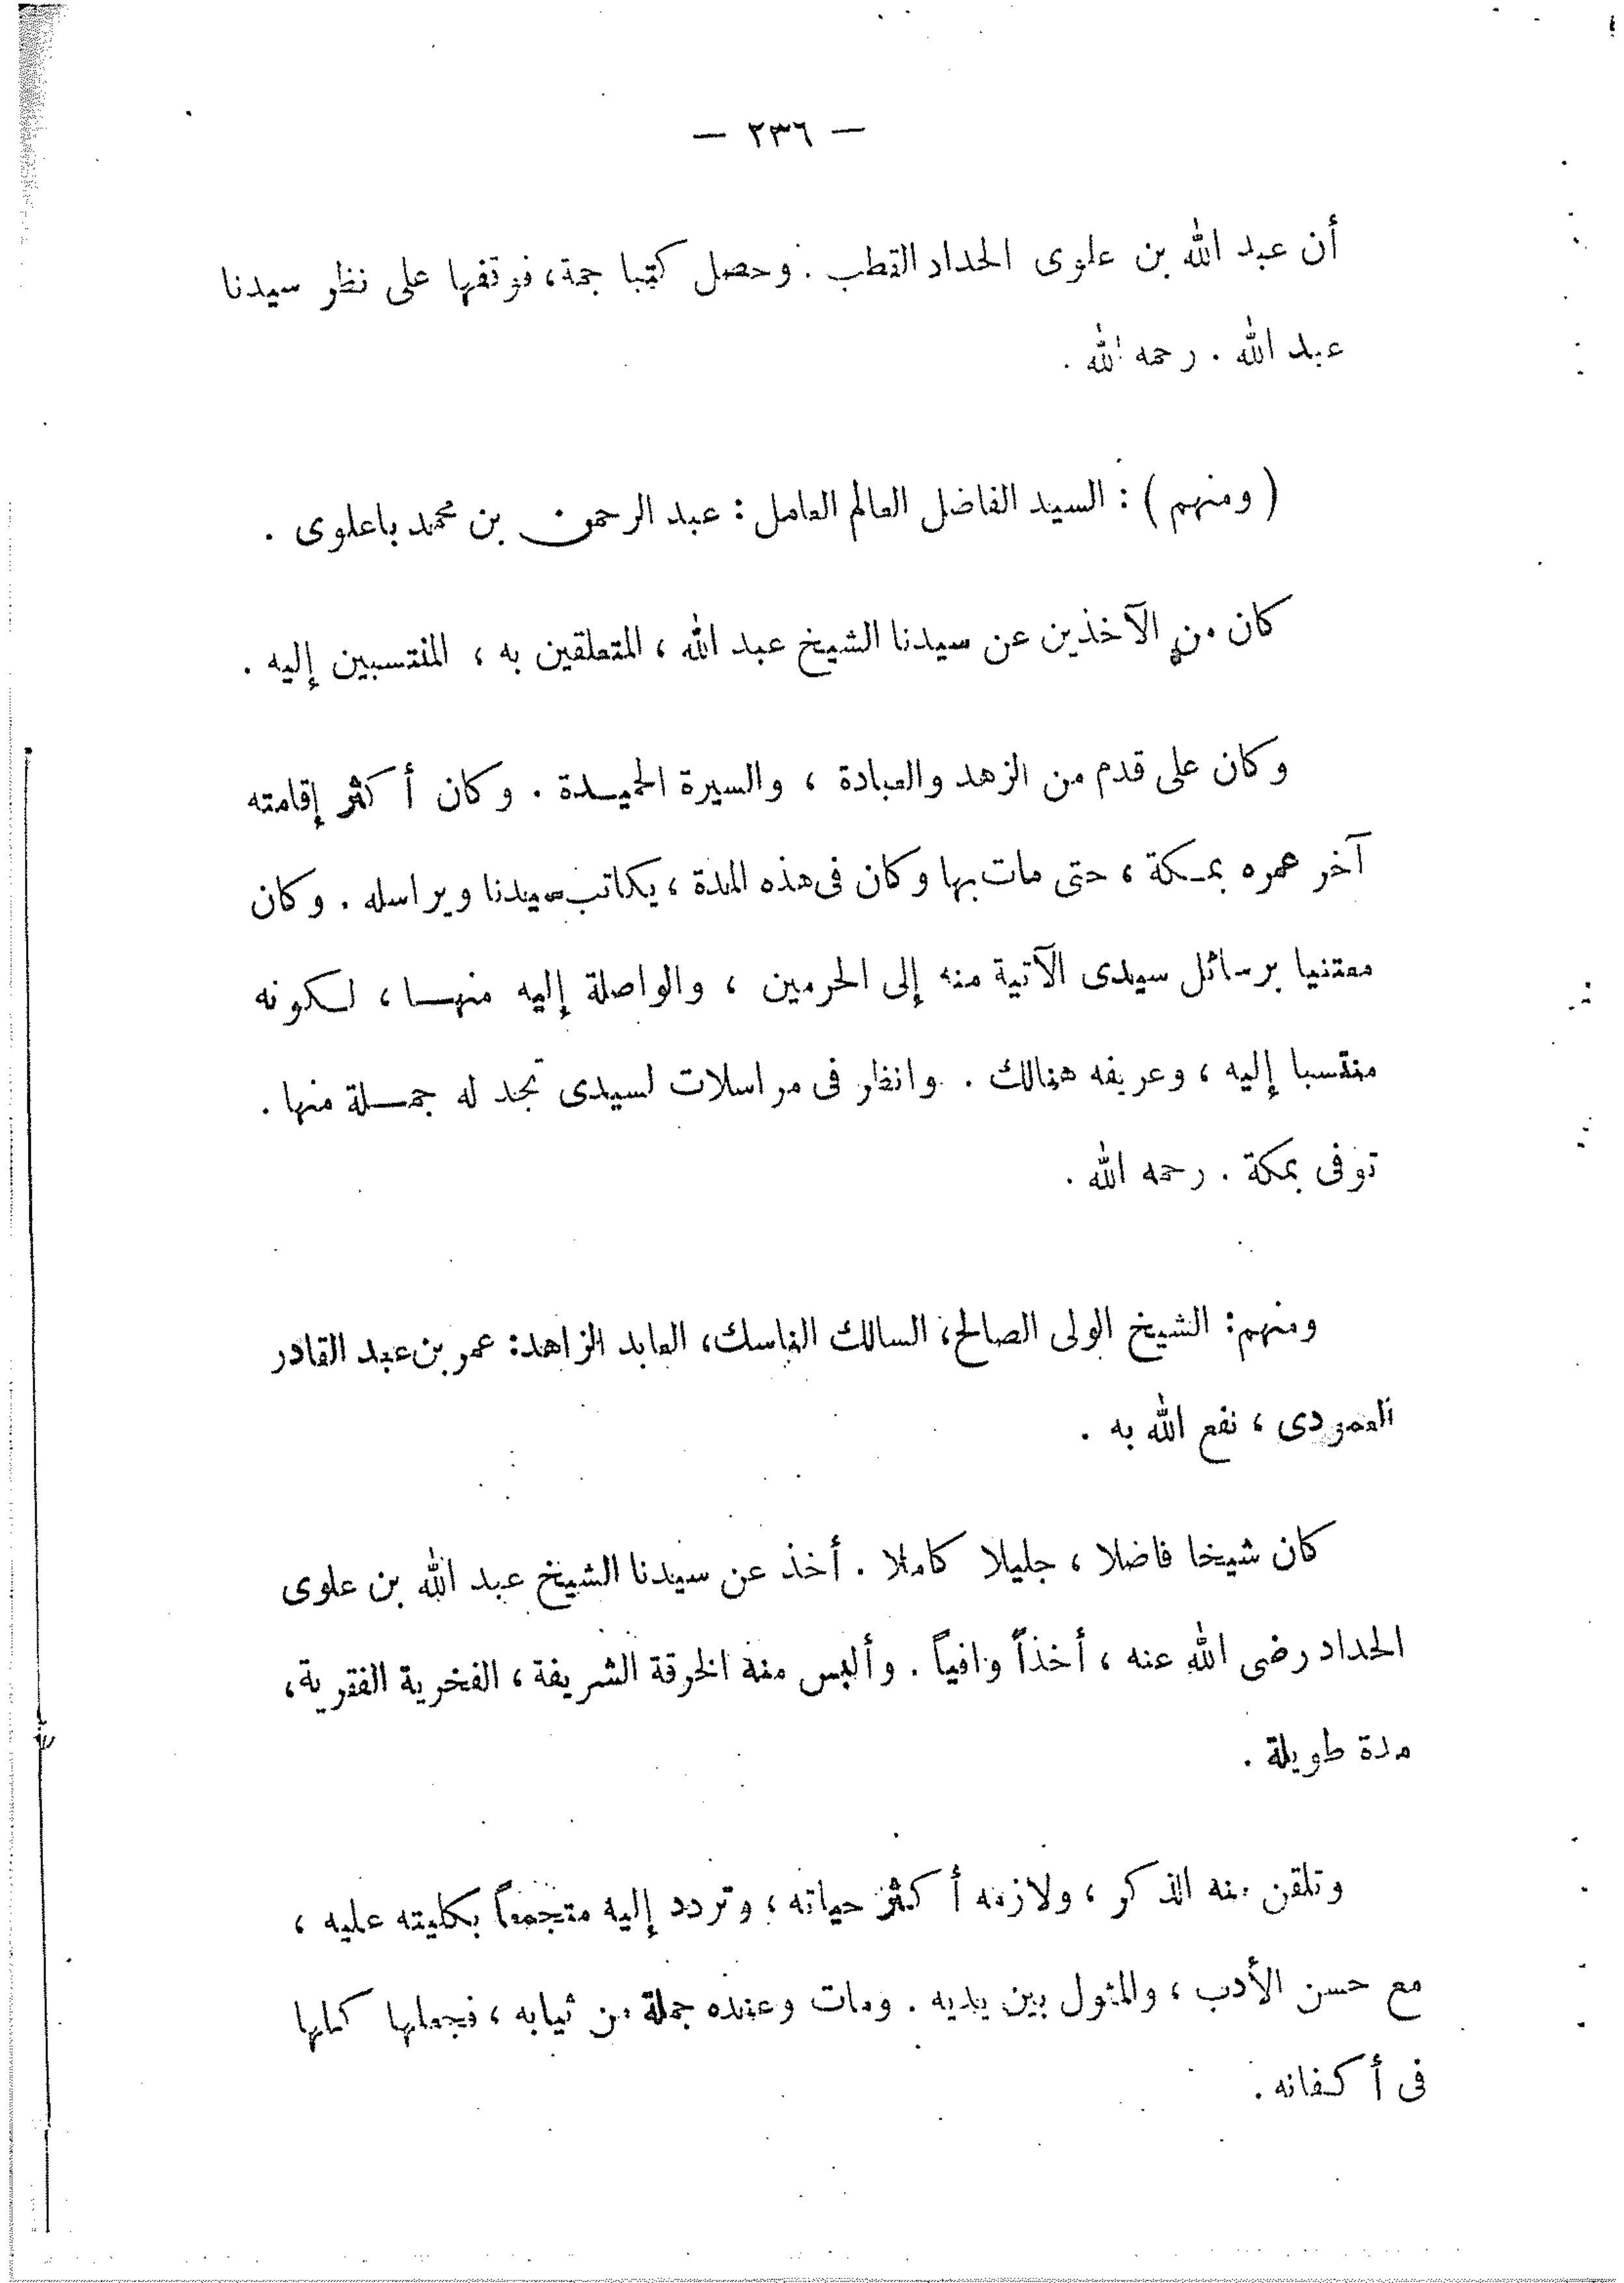 — ٢٣٦ —
أن عبد الله بن علوى الحداد القطب . وحصل كتبا جمة، فوقفها على نظر سيدنا
عبد الله . رحمه الله .
( ومنهم ) : السيد الفاضل العالم العامل : عبد الرحمن بن محمد باعلوى .
كان من الآخذين عن سيدنا الشيخ عبد الله ، المتعلقين به ، المنتسبين إليه .
وكان على قدم من الزهد والعبادة ، والسيرة الحميدة . وكان أكثر إقامته
آخر عمره بمكة ، حتى مات بها وكان فى هذه المدة ، يكاتب سيدنا ويراسله . وكان
معتنيا برسائل سيدى الآتية منه إلى الحرمين ، والواصلة إليه منها ، لكونه
منتسبا إليه ، وعريفه هنالك . وانظر فى مراسلات لسيدى تجد له جملة منها .
توفى بمكة . رحمه الله .
ومنهم: الشيخ الولى الصالح، السالك الناسك، العابد الزاهد: عمر بن عبد القادر
العمودى ، نفع الله به .
كان شيخا فاضلا ، جليلا كاملا . أخذ عن سيدنا الشيخ عبد الله بن علوى
الحداد رضى الله عنه ، أخذاً وافياً . وألبس منه الخرقة الشريفة ، الفخرية الفقرية،
مدة طويلة .
وتلقن منه الذكر ، ولازمه أكثر حياته ، وتردد إليه متجمعاً بكليته عليه ،
مع حسن الأدب ، والمثول بين يديه . ومات وعنده جملة من ثيابه ، فجعلها كلها
فى أكفانه .